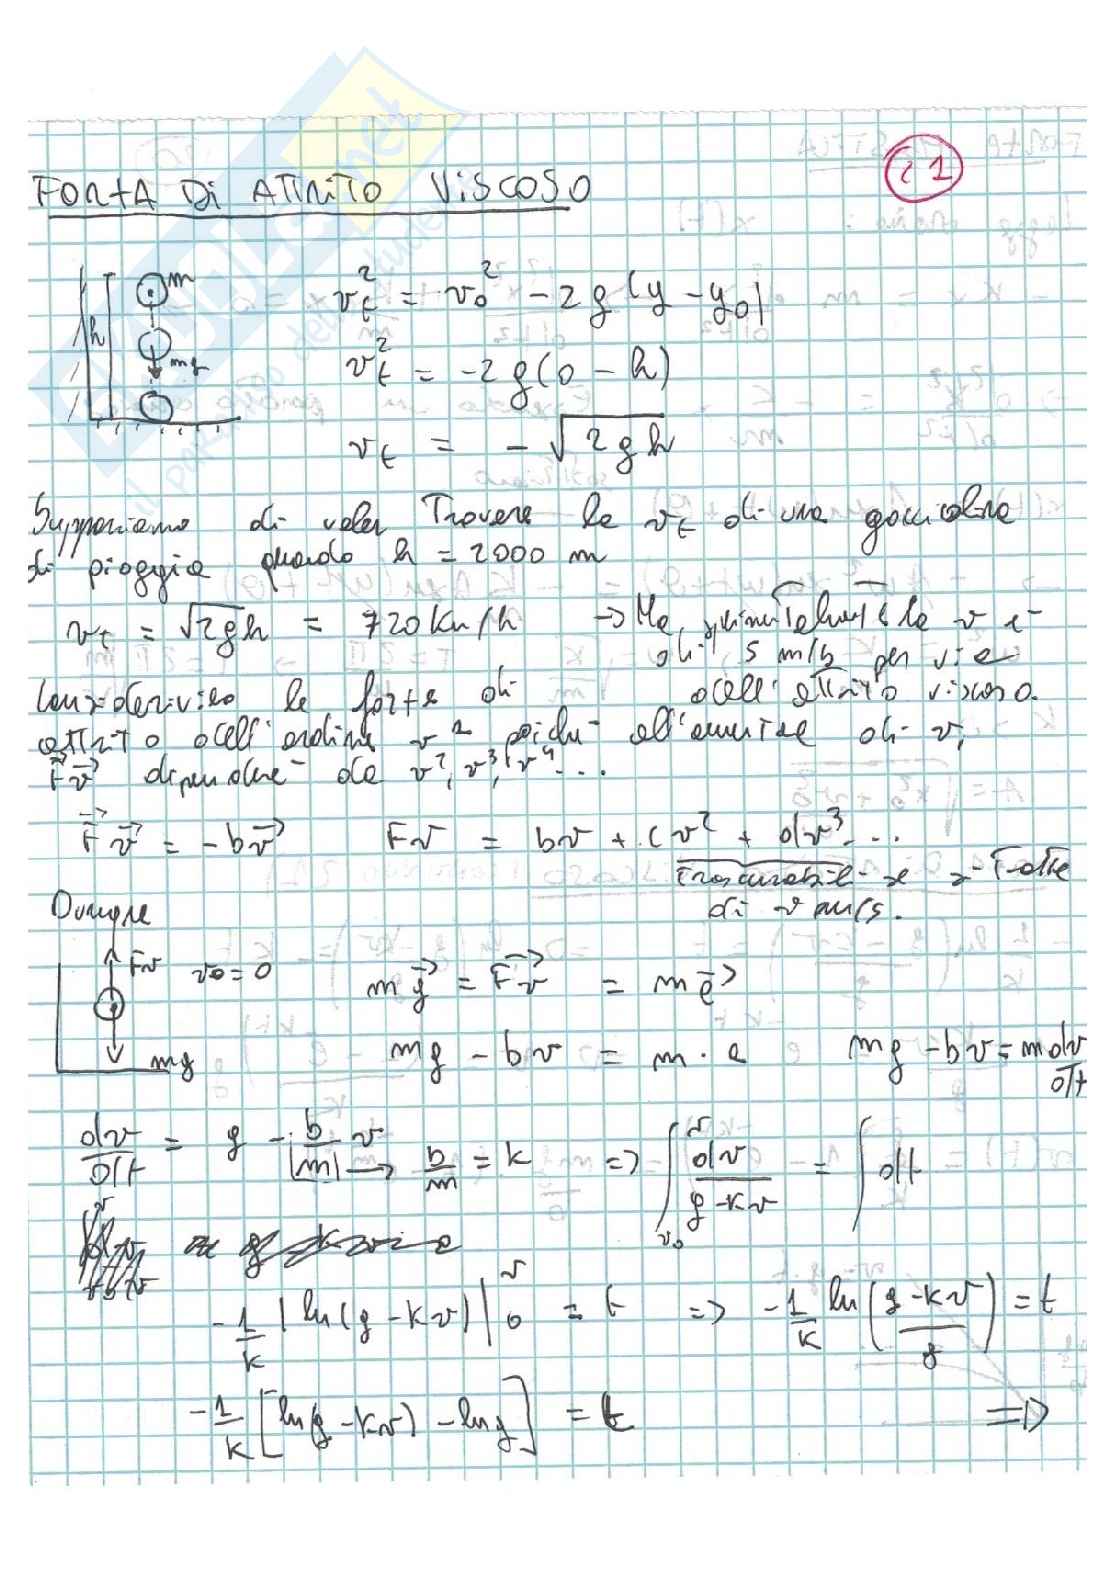 21
FORZA DI ATTRITO VISCOSO
m
h
mg
v_t^2 = v_0^2 - 2g(y - y_0)
v_t^2 = -2g(0 - h)
v_t = -√2gh
Supponiamo di voler trovare la v_t di una gocciolina
di pioggia quando h = 2000 m
v_t = √2gh = 720 Km/h → Ma sperimentalmente la v è
di 5 m/s per via
dell'attrito viscoso.
Consideriamo la forza di
attrito dell'ordine v^2 poiché all'aumentare di v,
F_v dipenderà da v^2, v^3, v^4...
F_v = -bv Fv = bv + cv^2 + dv^3...
trascurabile se si tratta
di v
Dunque
Fv v_0 = 0 mg = F_v = ma
mg
mg - bv = m · a mg - bv = m dv/dt
dv/dt = g - b/m v → b/m = k => ∫_{v_0}^{v} dv/(g - kv) = ∫ dt
-1/k | ln(g - kv) |_0^v = t => -1/k ln((g - kv)/g) = t
-1/k [ln(g - kv) - ln g] = t =>